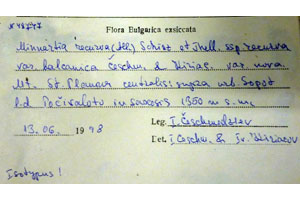 Flora Bulgarica exsiccata
Minuartia recurva (All.) Schinz et Thell. ssp. recurva
var. balcanica Česchm. & Kiriac. var. nova
Mt. St. Planina centralis: supra urb. Sopot
l.d. Počivaloto in saxosis 1350 m s. m.
13.06. 1978 Leg. I. Česchmedžiev
Det. I. Česchm. & Iv. Kiriacov
Isotypus!